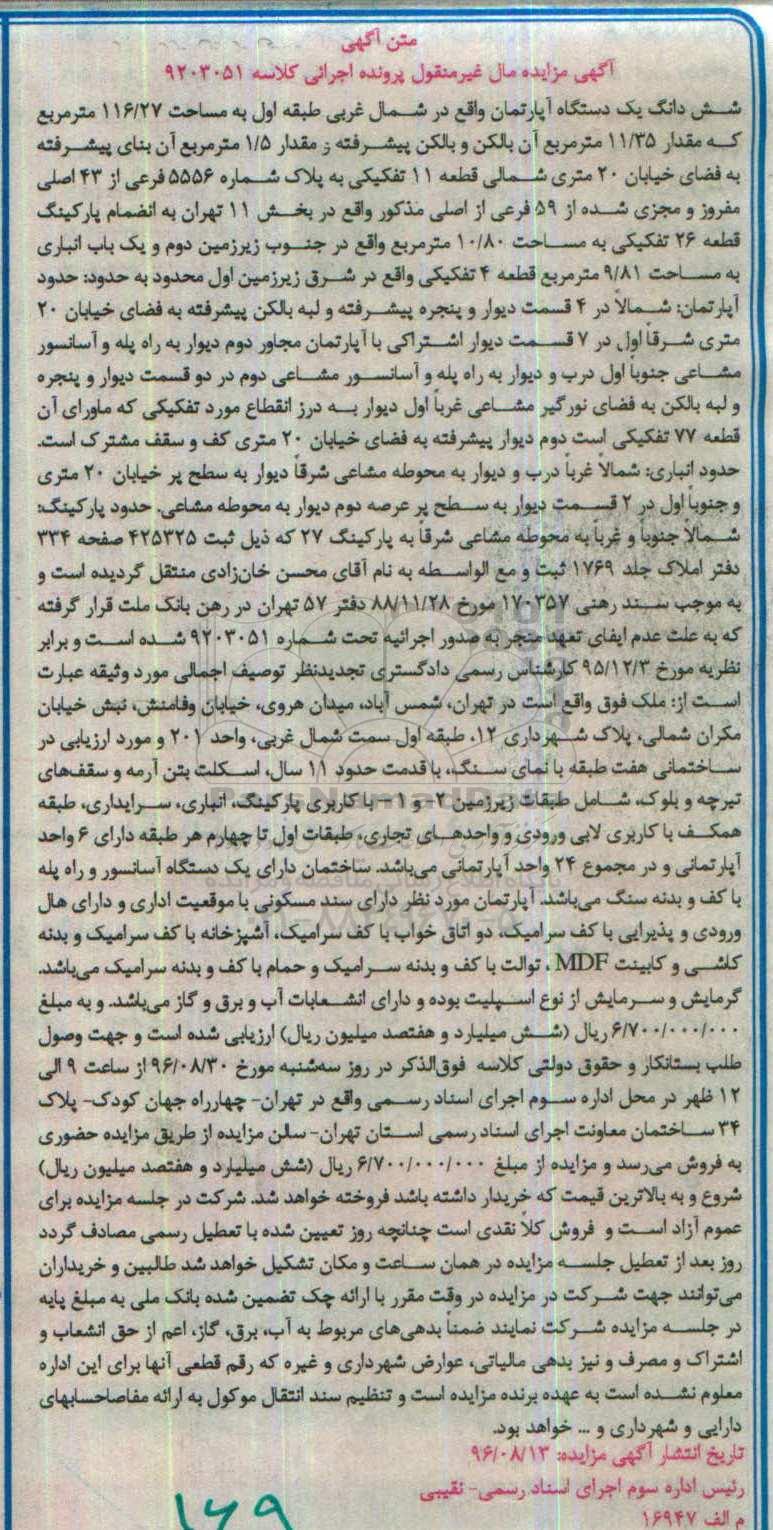 متن آگهی
آگهی مزایده مال غیرمنقول پرونده اجرائی کلاسه ۹۲۰۳۰۵۱
شش دانگ یک دستگاه آپارتمان واقع در شمال غربی طبقه اول به مساحت ۱۱۶/۲۷ مترمربع
که مقدار ۱۱/۳۵ مترمربع آن بالکن و بالکن پیشرفته و مقدار ۱/۵ مترمربع آن بنای پیشرفته
به فضای خیابان ۲۰ متری شمالی قطعه ۱۱ تفکیکی به پلاک شماره ۵۵۵۶ فرعی از ۴۳ اصلی
مفروز و مجزی شده از ۵۹ فرعی از اصلی مذکور واقع در بخش ۱۱ تهران به انضمام پارکینگ
قطعه ۲۶ تفکیکی به مساحت ۱۰/۸۰ مترمربع واقع در جنوب زیرزمین دوم و یک باب انباری
به مساحت ۹/۸۱ مترمربع قطعه ۴ تفکیکی واقع در شرق زیرزمین اول محدود به حدود: حدود
آپارتمان: شمالاً در ۴ قسمت دیوار و پنجره پیشرفته و لبه بالکن پیشرفته به فضای خیابان ۲۰
متری شرقاً اول در ۷ قسمت دیوار اشتراکی با آپارتمان مجاور دوم دیوار به راه پله و آسانسور
مشاعی جنوباً اول درب و دیوار به راه پله و آسانسور مشاعی دوم در دو قسمت دیوار و پنجره
و لبه بالکن به فضای نورگیر مشاعی غرباً اول دیوار به درز انقطاع مورد تفکیکی که ماورای آن
قطعه ۷۷ تفکیکی است دوم دیوار پیشرفته به فضای خیابان ۲۰ متری کف و سقف مشترک است.
حدود انباری: شمالاً غرباً درب و دیوار به محوطه مشاعی شرقاً دیوار به سطح پر خیابان ۲۰ متری
و جنوباً اول در ۲ قسمت دیوار به سطح پر عرصه دوم دیوار به محوطه مشاعی. حدود پارکینگ:
شمالاً جنوباً و غرباً به محوطه مشاعی شرقاً به پارکینگ ۲۷ که ذیل ثبت ۴۲۵۳۲۵ صفحه ۳۳۴
دفتر املاک جلد ۱۷۶۹ ثبت و مع الواسطه به نام آقای محسن خان‌زادی منتقل گردیده است و
به موجب سند رهنی ۱۷۰۳۵۷ مورخ ۸۸/۱۱/۲۸ دفتر ۵۷ تهران در رهن بانک ملت قرار گرفته
که به علت عدم ایفای تعهد منجر به صدور اجرائیه تحت شماره ۹۲۰۳۰۵۱ شده است و برابر
نظریه مورخ ۹۵/۱۲/۳ کارشناس رسمی دادگستری تجدیدنظر توصیف اجمالی مورد وثیقه عبارت
است از: ملک فوق واقع است در تهران، شمس آباد، میدان هروی، خیابان وفامنش، نبش خیابان
مکران شمالی، پلاک شهرداری ۱۲، طبقه اول سمت شمال غربی، واحد ۲۰۱ و مورد ارزیابی در
ساختمانی هفت طبقه با نمای سنگ، با قدمت حدود ۱۱ سال، اسکلت بتن آرمه و سقف‌های
تیرچه و بلوک، شامل طبقات زیرزمین ۲- و ۱- با کاربری پارکینگ، انباری، سرایداری، طبقه
همکف با کاربری لابی ورودی و واحدهای تجاری، طبقات اول تا چهارم هر طبقه دارای ۶ واحد
آپارتمانی و در مجموع ۲۴ واحد آپارتمانی می‌باشد. ساختمان دارای یک دستگاه آسانسور و راه پله
با کف و بدنه سنگ می‌باشد. آپارتمان مورد نظر دارای سند مسکونی با موقعیت اداری و دارای هال
ورودی و پذیرایی با کف سرامیک، دو اتاق خواب با کف سرامیک، آشپزخانه با کف سرامیک و بدنه
کاشی و کابینت MDF ، توالت با کف و بدنه سرامیک و حمام با کف و بدنه سرامیک می‌باشد.
گرمایش و سرمایش از نوع اسپلیت بوده و دارای انشعابات آب و برق و گاز می‌باشد. و به مبلغ
۶/۷۰۰/۰۰۰/۰۰۰ ریال (شش میلیارد و هفتصد میلیون ریال) ارزیابی شده است و جهت وصول
طلب بستانکار و حقوق دولتی کلاسه فوق‌الذکر در روز سه‌شنبه مورخ ۹۶/۰۸/۳۰ از ساعت ۹ الی
۱۲ ظهر در محل اداره سوم اجرای اسناد رسمی واقع در تهران- چهارراه جهان کودک- پلاک
۳۴ ساختمان معاونت اجرای اسناد رسمی استان تهران- سالن مزایده از طریق مزایده حضوری
به فروش می‌رسد و مزایده از مبلغ ۶/۷۰۰/۰۰۰/۰۰۰ ریال (شش میلیارد و هفتصد میلیون ریال)
شروع و به بالاترین قیمت که خریدار داشته باشد فروخته خواهد شد. شرکت در جلسه مزایده برای
عموم آزاد است و فروش کلاً نقدی است چنانچه روز تعیین شده با تعطیل رسمی مصادف گردد
روز بعد از تعطیل جلسه مزایده در همان ساعت و مکان تشکیل خواهد شد طالبین و خریداران
می‌توانند جهت شرکت در مزایده در وقت مقرر با ارائه چک تضمین شده بانک ملی به مبلغ پایه
در جلسه مزایده شرکت نمایند ضمناً بدهی‌های مربوط به آب، برق، گاز، اعم از حق انشعاب و
اشتراک و مصرف و نیز بدهی مالیاتی، عوارض شهرداری و غیره که رقم قطعی آنها برای این اداره
معلوم نشده است به عهده برنده مزایده است و تنظیم سند انتقال موکول به ارائه مفاصاحسابهای
دارایی و شهرداری و ... خواهد بود.
تاریخ انتشار آگهی مزایده: ۹۶/۰۸/۱۳
رئیس اداره سوم اجرای اسناد رسمی- نقیبی
م الف ۱۶۹۴۷
۱۶۹